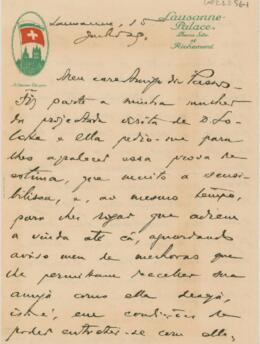 Lausanne, 15
Junho 29.
Lausanne-
Palace.
Beau Site
et
Richemont
Meu caro Amigo Dr.
Fiz parte a minha mulher
da projectada visita de D.
e ella pediu-me para
lhes agradecer essa prova de
estima, que muito a sensi-
bilisou, e, ao mesmo tempo,
para lhes rogar que adiem
a vinda até cá, aguardando
aviso meu de melhoras que
lhe permittam receber sua
amiga como ella deseja,
isto é, em condições de
poder entreter-se com ella,